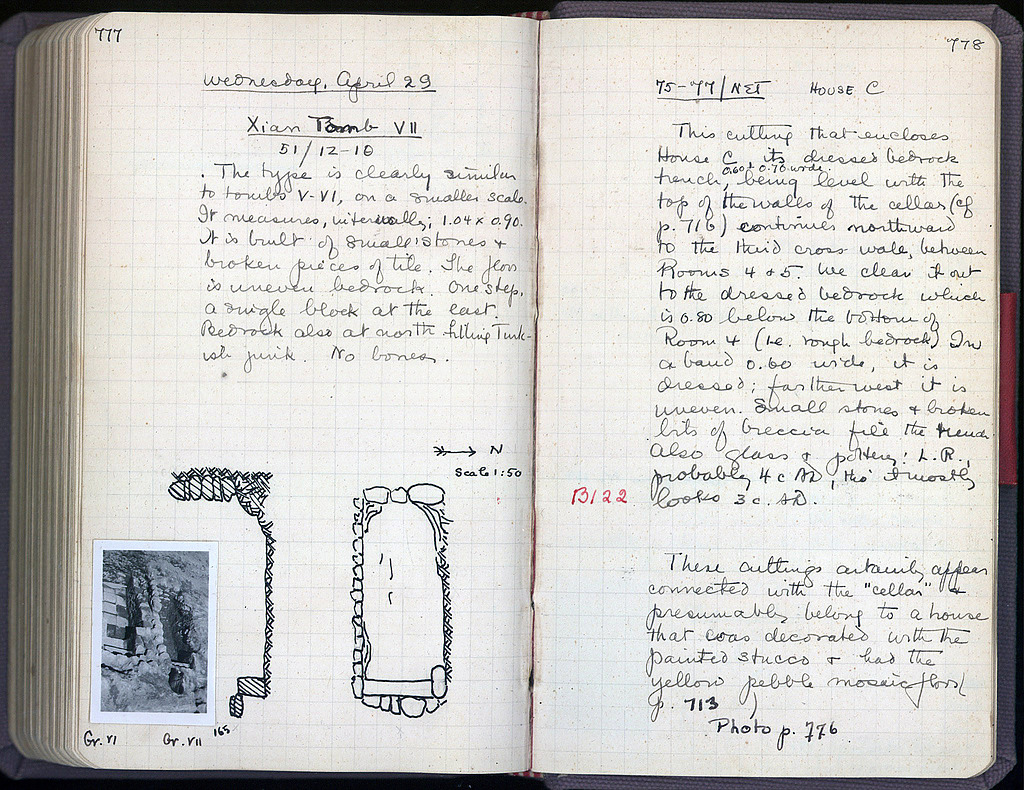 777
Wednesday, April 29
Xian Tomb VII
51/12-10
. The type is clearly similar
to tombs V-VI, on a smaller scale.
It measures, internally; 1.04 x 0.90.
It is built of small stones +
broken pieces of tile. The floor
is uneven bedrock. One step,
a single block at the east.
Bedrock also at north filling Turk-
ish junk. No bones.
N
Scale 1:50
Gr. VI Gr. VII 165
778
75-77/NET HOUSE C
This cutting that encloses
House C, its dressed bedrock
0.60± 0.70 wide
trench, being level with the
top of the walls of the cellar (cf
p. 716) continues northward
to the third cross wall, between
Rooms 4 & 5. We clear it out
to the dressed bedrock which
is 0.80 below the bottom of
Room 4 (i.e. rough bedrock) In
a band 0.60 wide, it is
dressed; farther west it is
uneven. Small stones + broken
bits of breccia fill the trench
also glass + pottery: L.R.,
probably 4 c AD, tho' it mostly
B122 looks 3 c. AD.
These cuttings certainly appear
connected with the "cellar" +
presumably belong to a house
that was decorated with the
painted stucco + had the
yellow pebble mosaic floor (
p. 713)
Photo p. 776